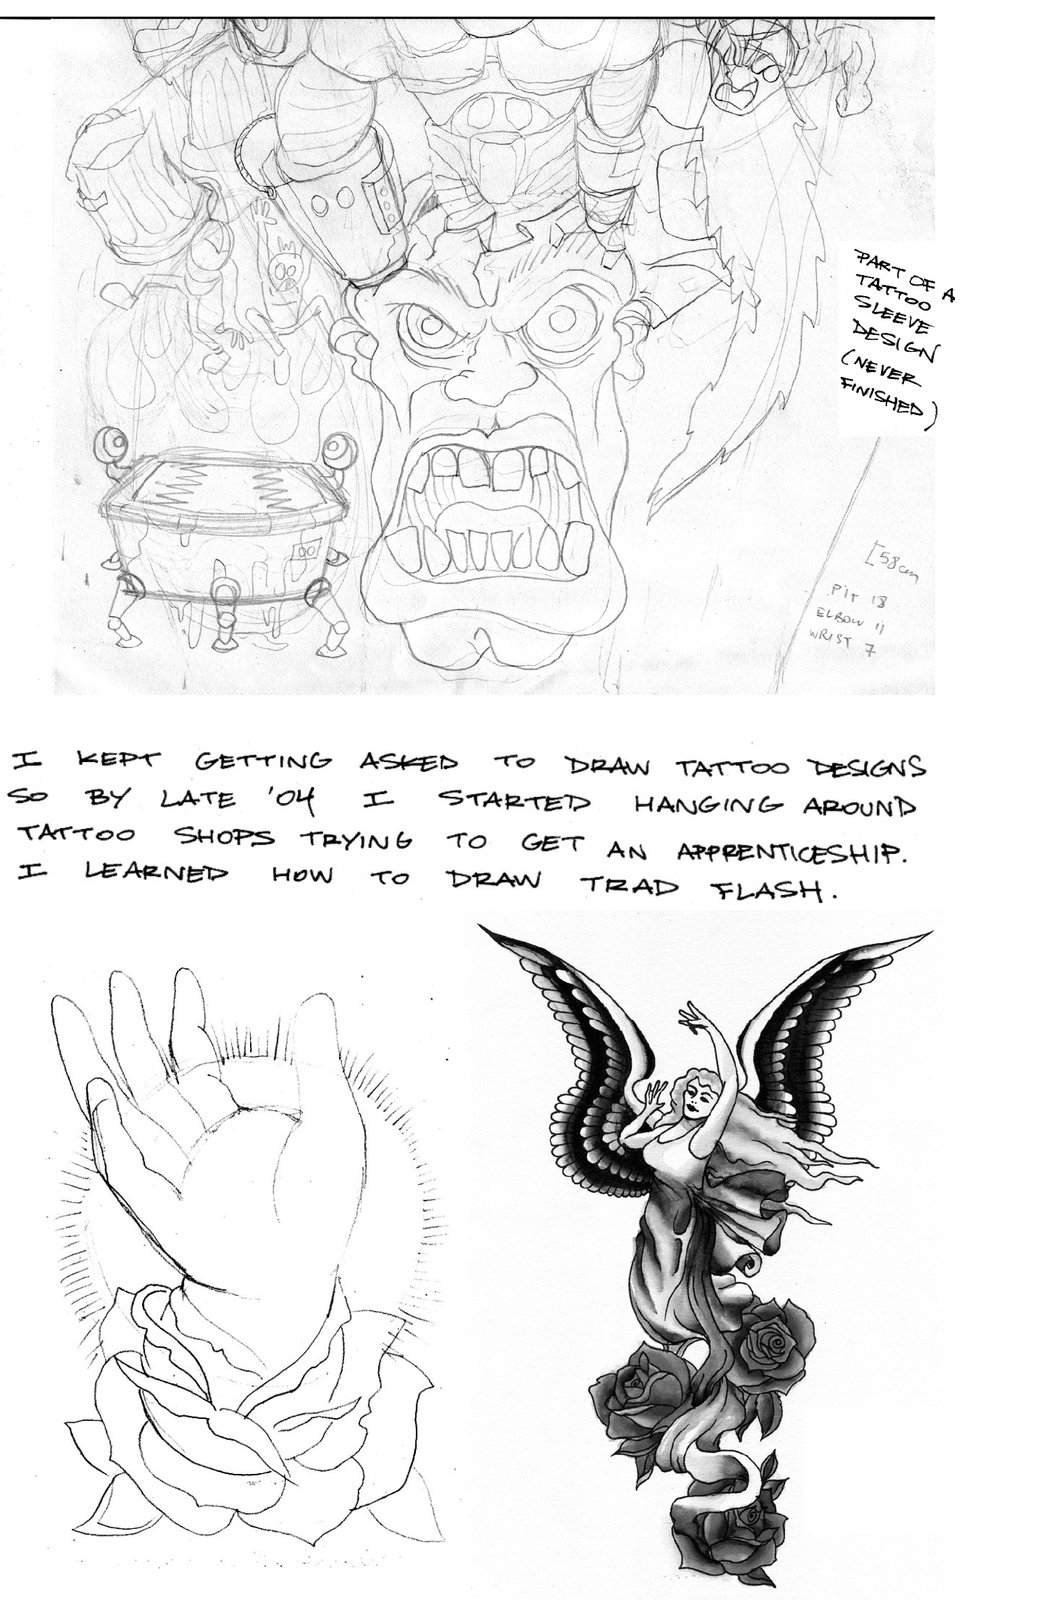 PART OF A
TATTOO
SLEEVE
DESIGN
(NEVER
FINISHED)
58cm
PIT 18
ELBOW 11
WRIST 7
I KEPT GETTING ASKED TO DRAW TATTOO DESIGNS
SO BY LATE '04 I STARTED HANGING AROUND
TATTOO SHOPS TRYING TO GET AN APPRENTICESHIP.
I LEARNED HOW TO DRAW TRAD FLASH.